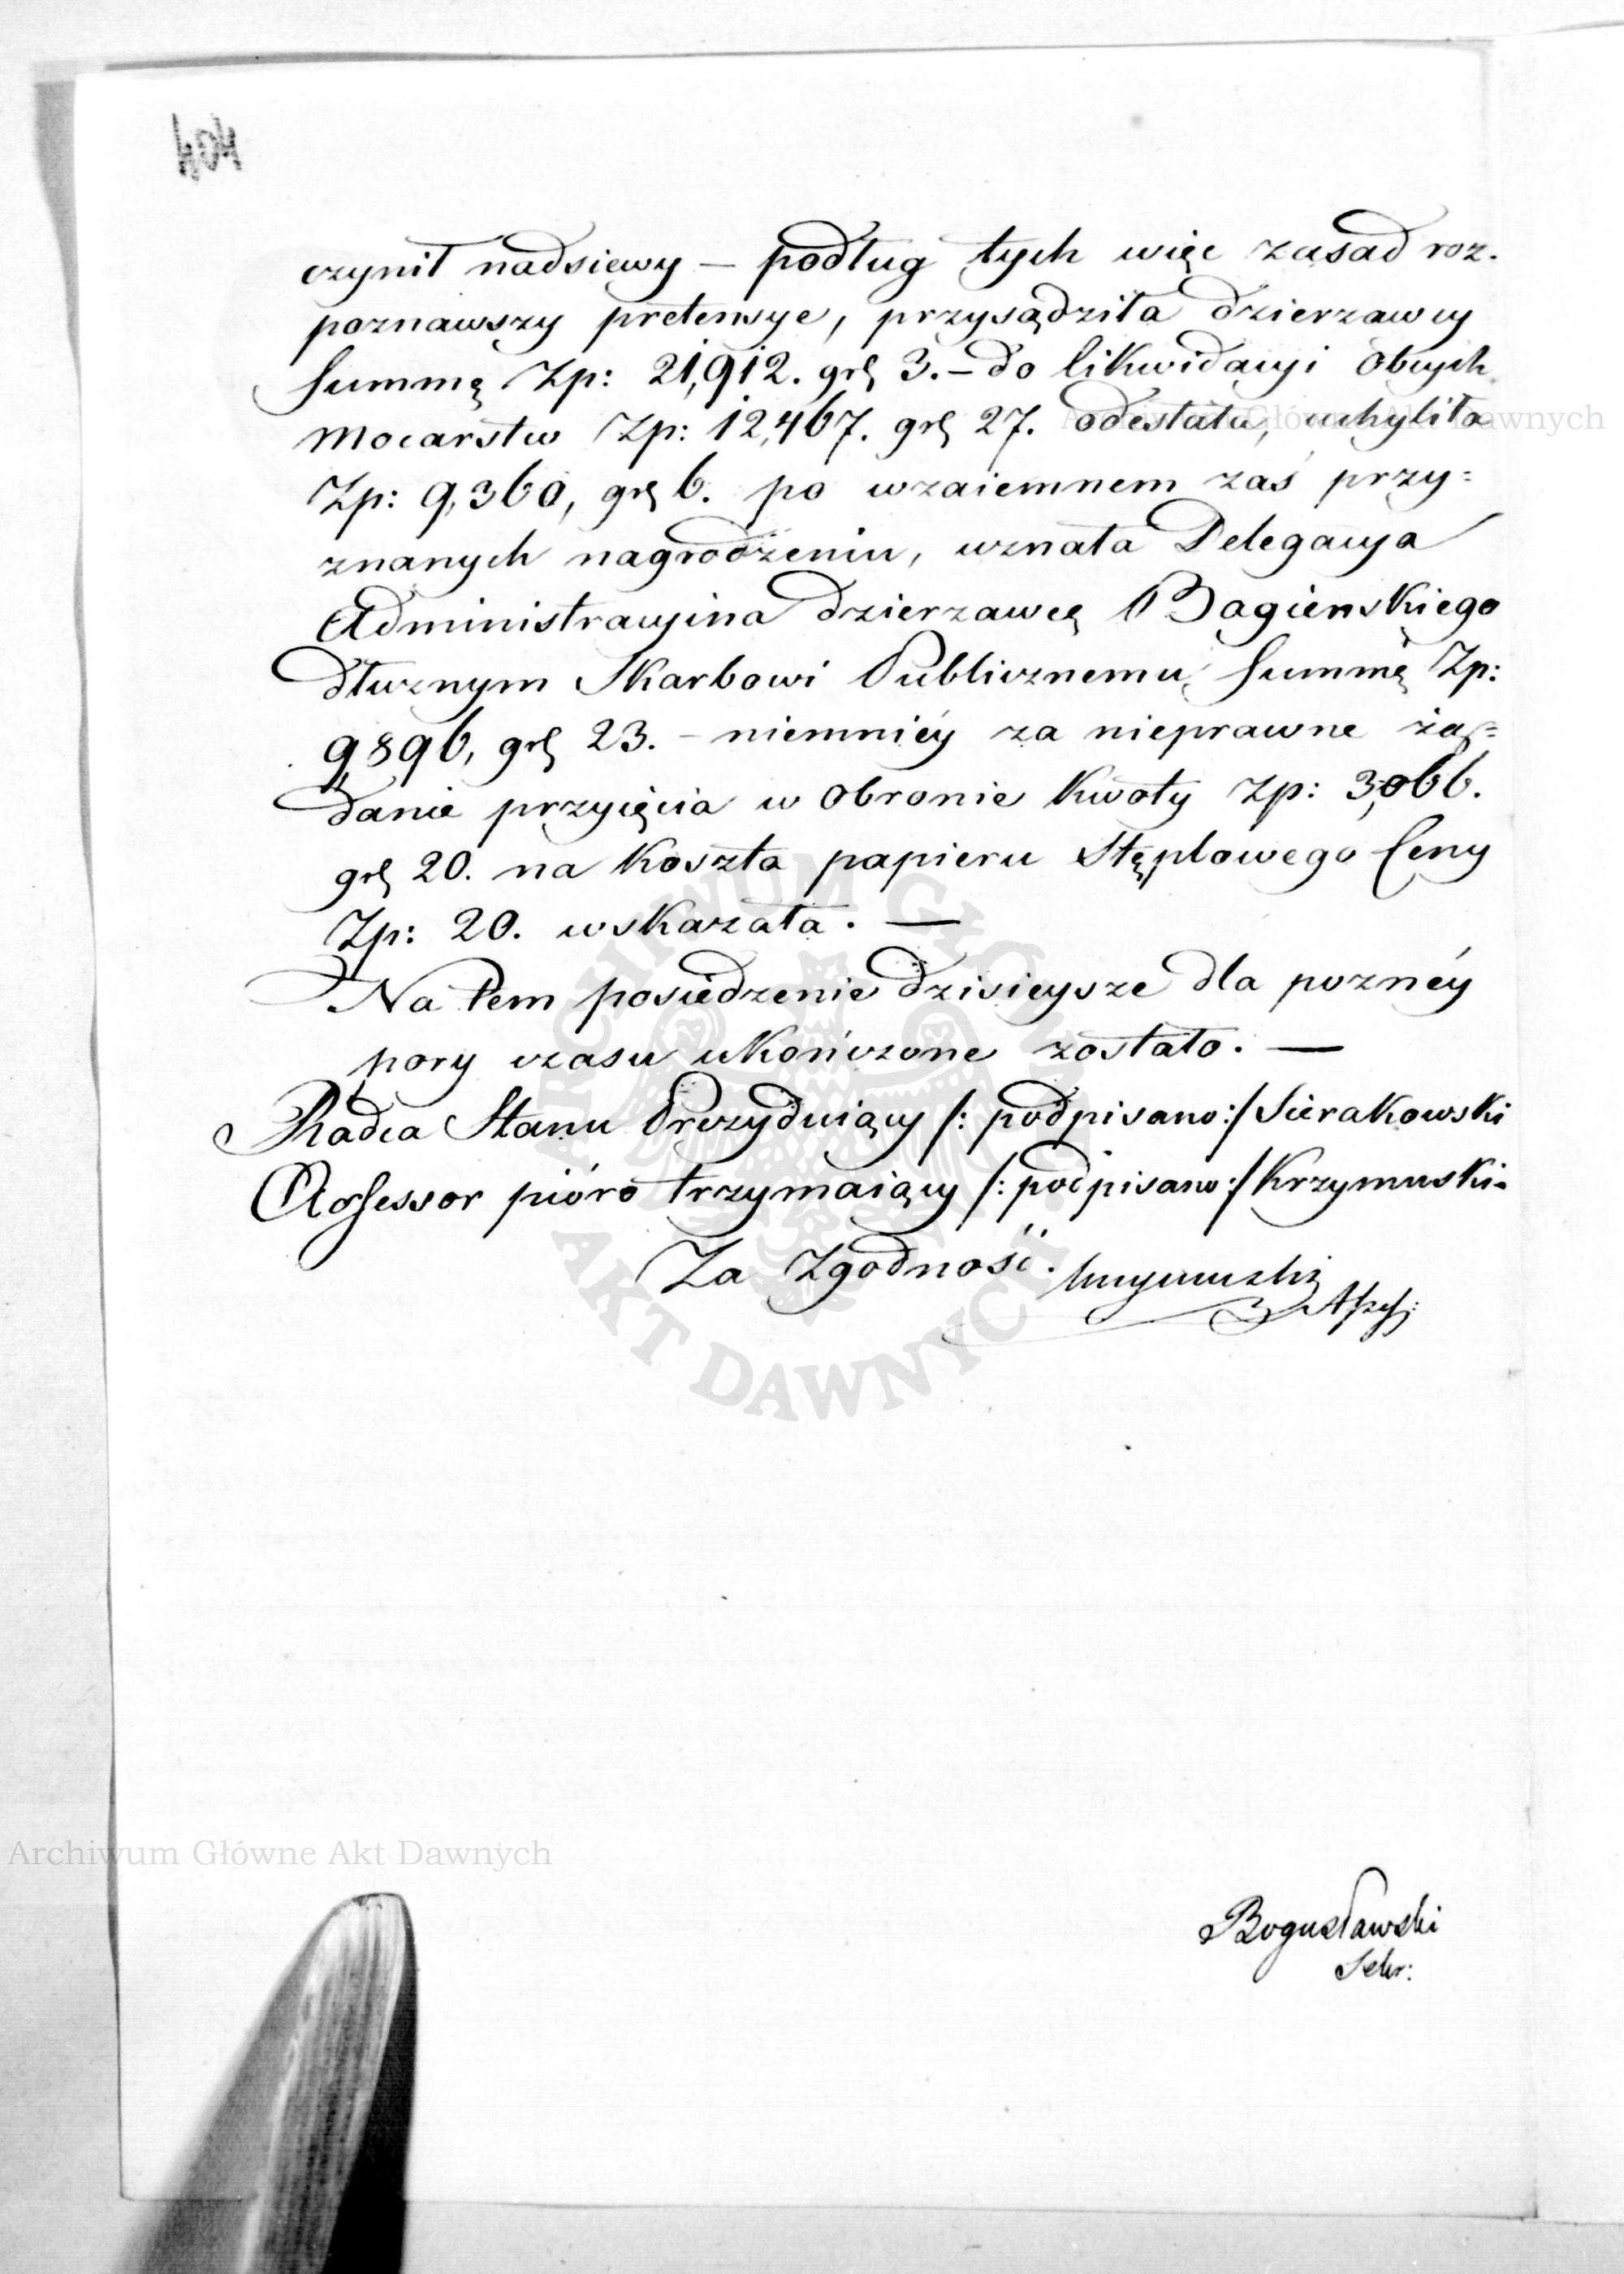 404
czynił nadsiewy — podług tych więc zasad roz-
poznawszy pretensye, przysądziła dzierzawcy
Summę Zp: 21,912. gr 3. — do likwidacyi obcych
Mocarstw Zp: 12,467. gr 27. odesłała, uchyliła
Zp: 9,360, gr 6. po wzaiemnem zaś przy=
znanych nagrodzeniu, uznała Delegacya
Administracyina dzierzawcę Bagienskiego
dłuznym Skarbowi Publicznemu, Summę Zp:
9,896, gr 23. — niemniéy za nieprawne żą=
danie przyięcia w obronie kwoty Zp: 3,066.
gr 20. na koszta papieru Stęplowego Ceny
Zp: 20. wskazała. —
Na tem posiedzenie dzisieysze dla pozney
pory czasu ukończone zostało. —
Radca Stanu Prezyduiący /: podpisano :/ Sierakowski
Assessor pióro trzymaiący /: podpisano :/ Krzymuski.
Za Zgodność. Krzymuski
Bogusławski
Sekr:
Archiwum Główne Akt Dawnych
Archiwum Główne Akt Dawnych
ARCHIWUM GŁÓWNE AKT DAWNYCH